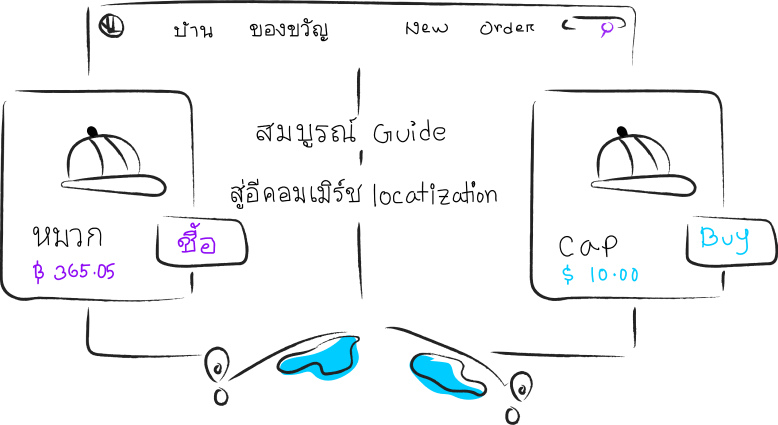 บ้าน ของขวัญ New Order
สมบูรณ์ Guide
สู่อีคอมเมิร์ซ locatization
หมวก
ซื้อ
฿ 365.05
Cap
Buy
$ 10.00